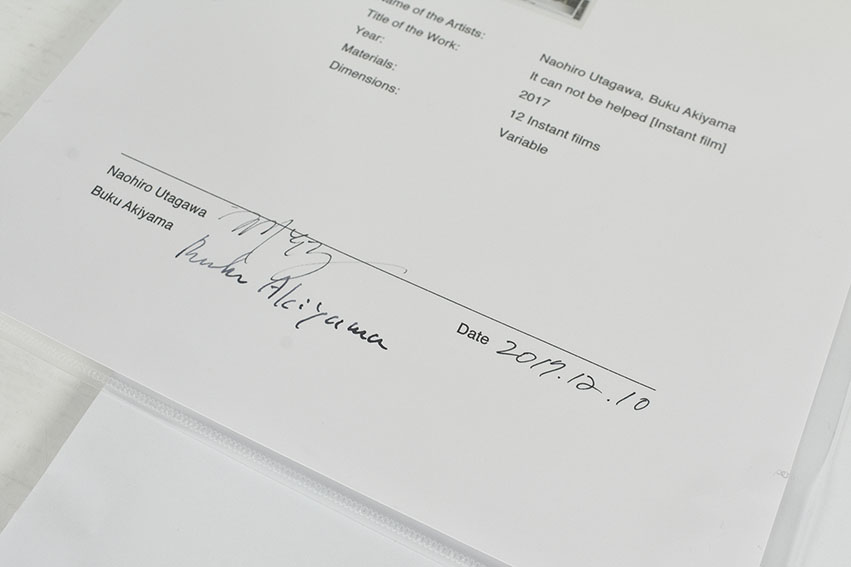 Name of the Artists: Naohiro Utagawa, Buku Akiyama
Title of the Work: It can not be helped [Instant film]
Year: 2017
Materials: 12 Instant films
Dimensions: Variable
Naohiro Utagawa
Buku Akiyama Buku Akiyama
Date 2017.12.10